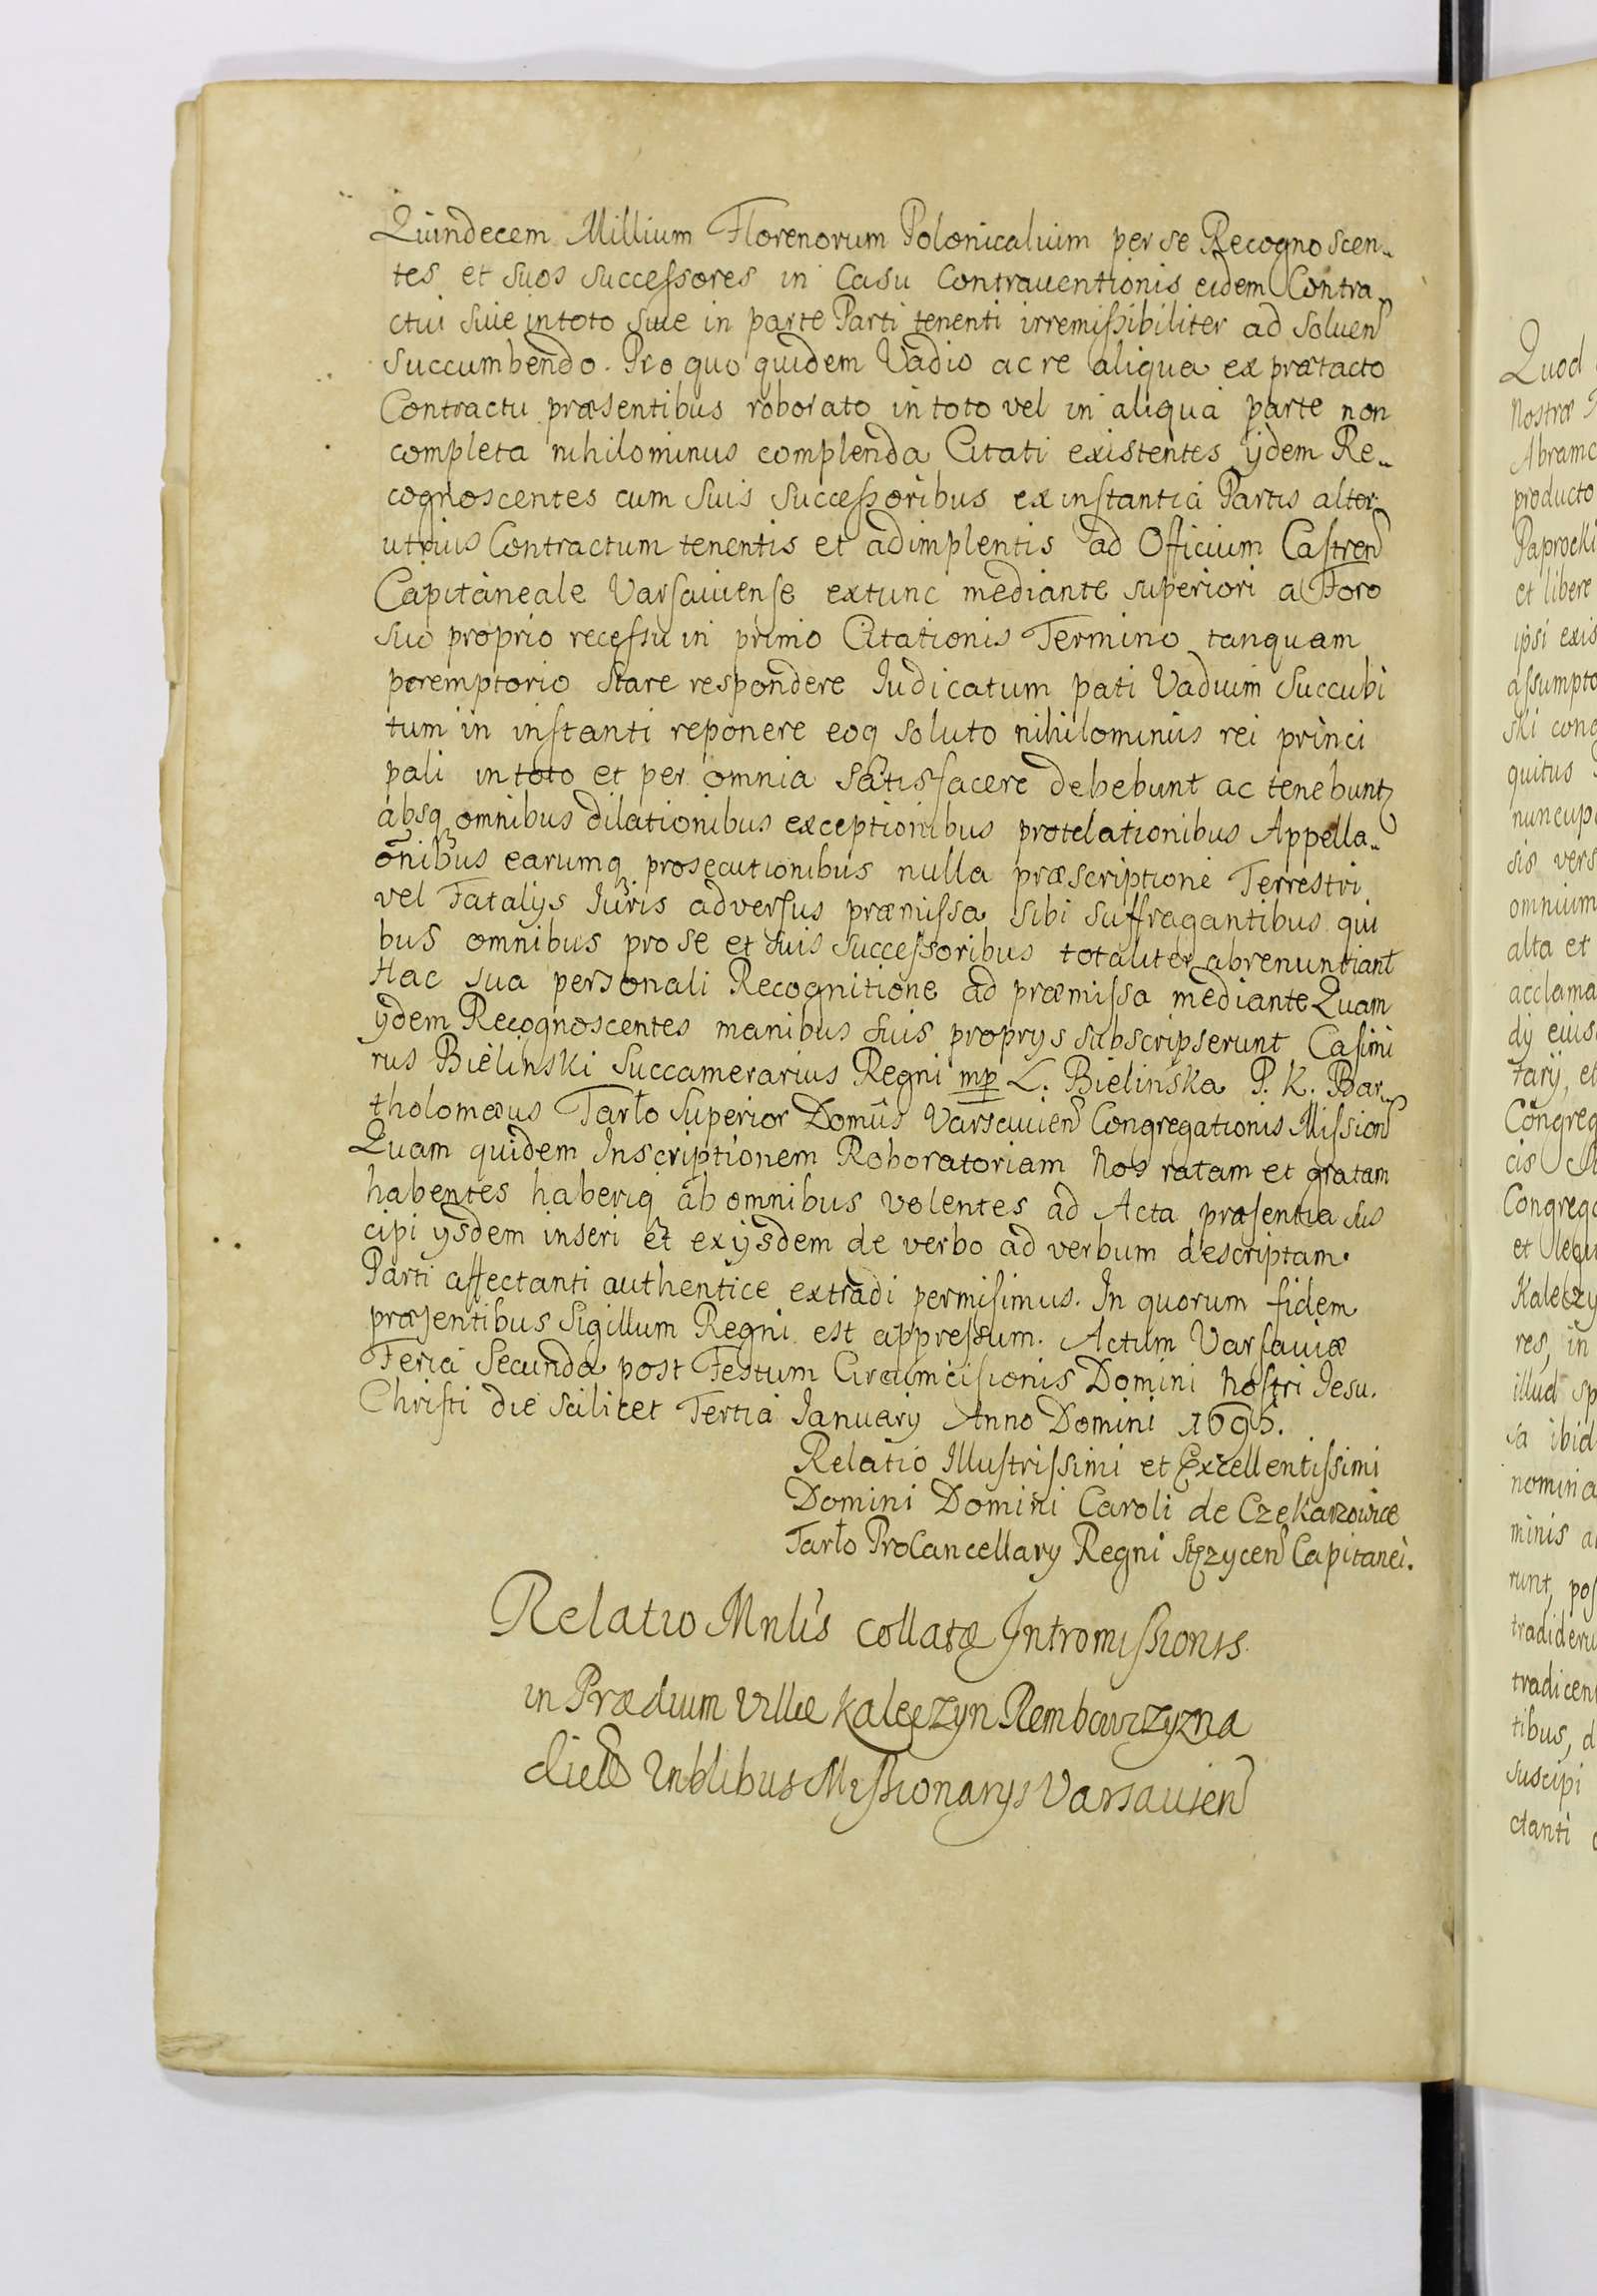 Quindecem Millium Florenorum Polonicalium per se Recognoscen„
tes et suos successores in Casu Contrauentionis eidem Contra„
ctui siue in toto siue in parte Parti tenenti irremissibiliter ad soluen
succumbendo. Pro quo quidem Vadio ac re aliqua ex prætacto
Contractu præsentibus roborato in toto vel in aliqua parte non
completa nihilominus complenda Citati existentes ijdem Re„
cognoscentes cum suis successoribus ex instantia Partis alter„
utrius Contractum tenentis et adimplentis ad Officium Castren
Capitaneale Varsauiense extunc mediante superiori a Foro
suo proprio recessu in primo Citationis Termino tanquam
peremptorio stare respondere Iudicatum pati Vadium succubi
tum in instanti reponere eoq soluto nihilominus rei princi
pali in toto et per omnia satisfacere debebunt ac tenebunt
absq omnibus dilationibus exceptionibus protelationibus Appella„
onibus earumq prosecutionibus nulla præscriptione Terrestri
vel Fatalijs Iuris adversus præmissa sibi suffragantibus qui
bus omnibus pro se et suis successoribus totaliter abrenuntiant
Hac sua personali Recognitione ad præmissa mediante Quam
ijdem Recognoscentes manibus suis proprijs subscripserunt Casimi
rus Bielinski Succamerarius Regni mp L. Bielinska P. K. Bar„
tholomæus Tarło Superior Domûs Varsauien Congregationis Mission
Quam quidem Inscriptionem Roboratoriam Nos ratam et gratam
habentes haberiq ab omnibus volentes ad Acta præsentia sus
cipi ijsdem inseri et ex ijsdem de verbo ad verbum descriptam
Parti affectanti authentice extradi permisimus. In quorum fidem
præsentibus Sigillum Regni est appressum. Actum Varsauiæ
Feria Secunda post Festum Circumcisionis Domini Nostri Iesu
Christi die scilicet Tertia Ianuarij Anno Domini 1695.
Relatio Illustrissimi et Excellentissimi
Domini Domini Caroli de Czekarzowice
Tarło ProCancellarij Regni Stęzycen Capitanei.
Relatio Mnlis collatæ Intromissionis
in Prædium Villæ Kaleczyn Rembowszyzna
Vnblibus Missionarijs Varsauien
Quod
Nostræ
producto
Paprocki
et libere
ipsi exis
assumpto
ski cong
quitus
nuncup
sis vers
omnium
alta et
acclama
dij eius
tarij, et
Congreg
cis
Congrega
et
Kalecзy
res, in
illud sp
sa ibid
nomina
minis a
runt, pos
tradideru
tradicen
tibus, d
suscipi
ctanti